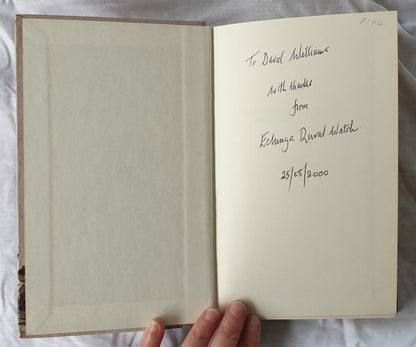 8/40
To David Williams
With thanks
from
Echunga Rural Watch
25/05/2000